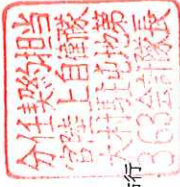 分任契約担当
官陸上自衛隊
大村駐屯地第
363会計隊長
行